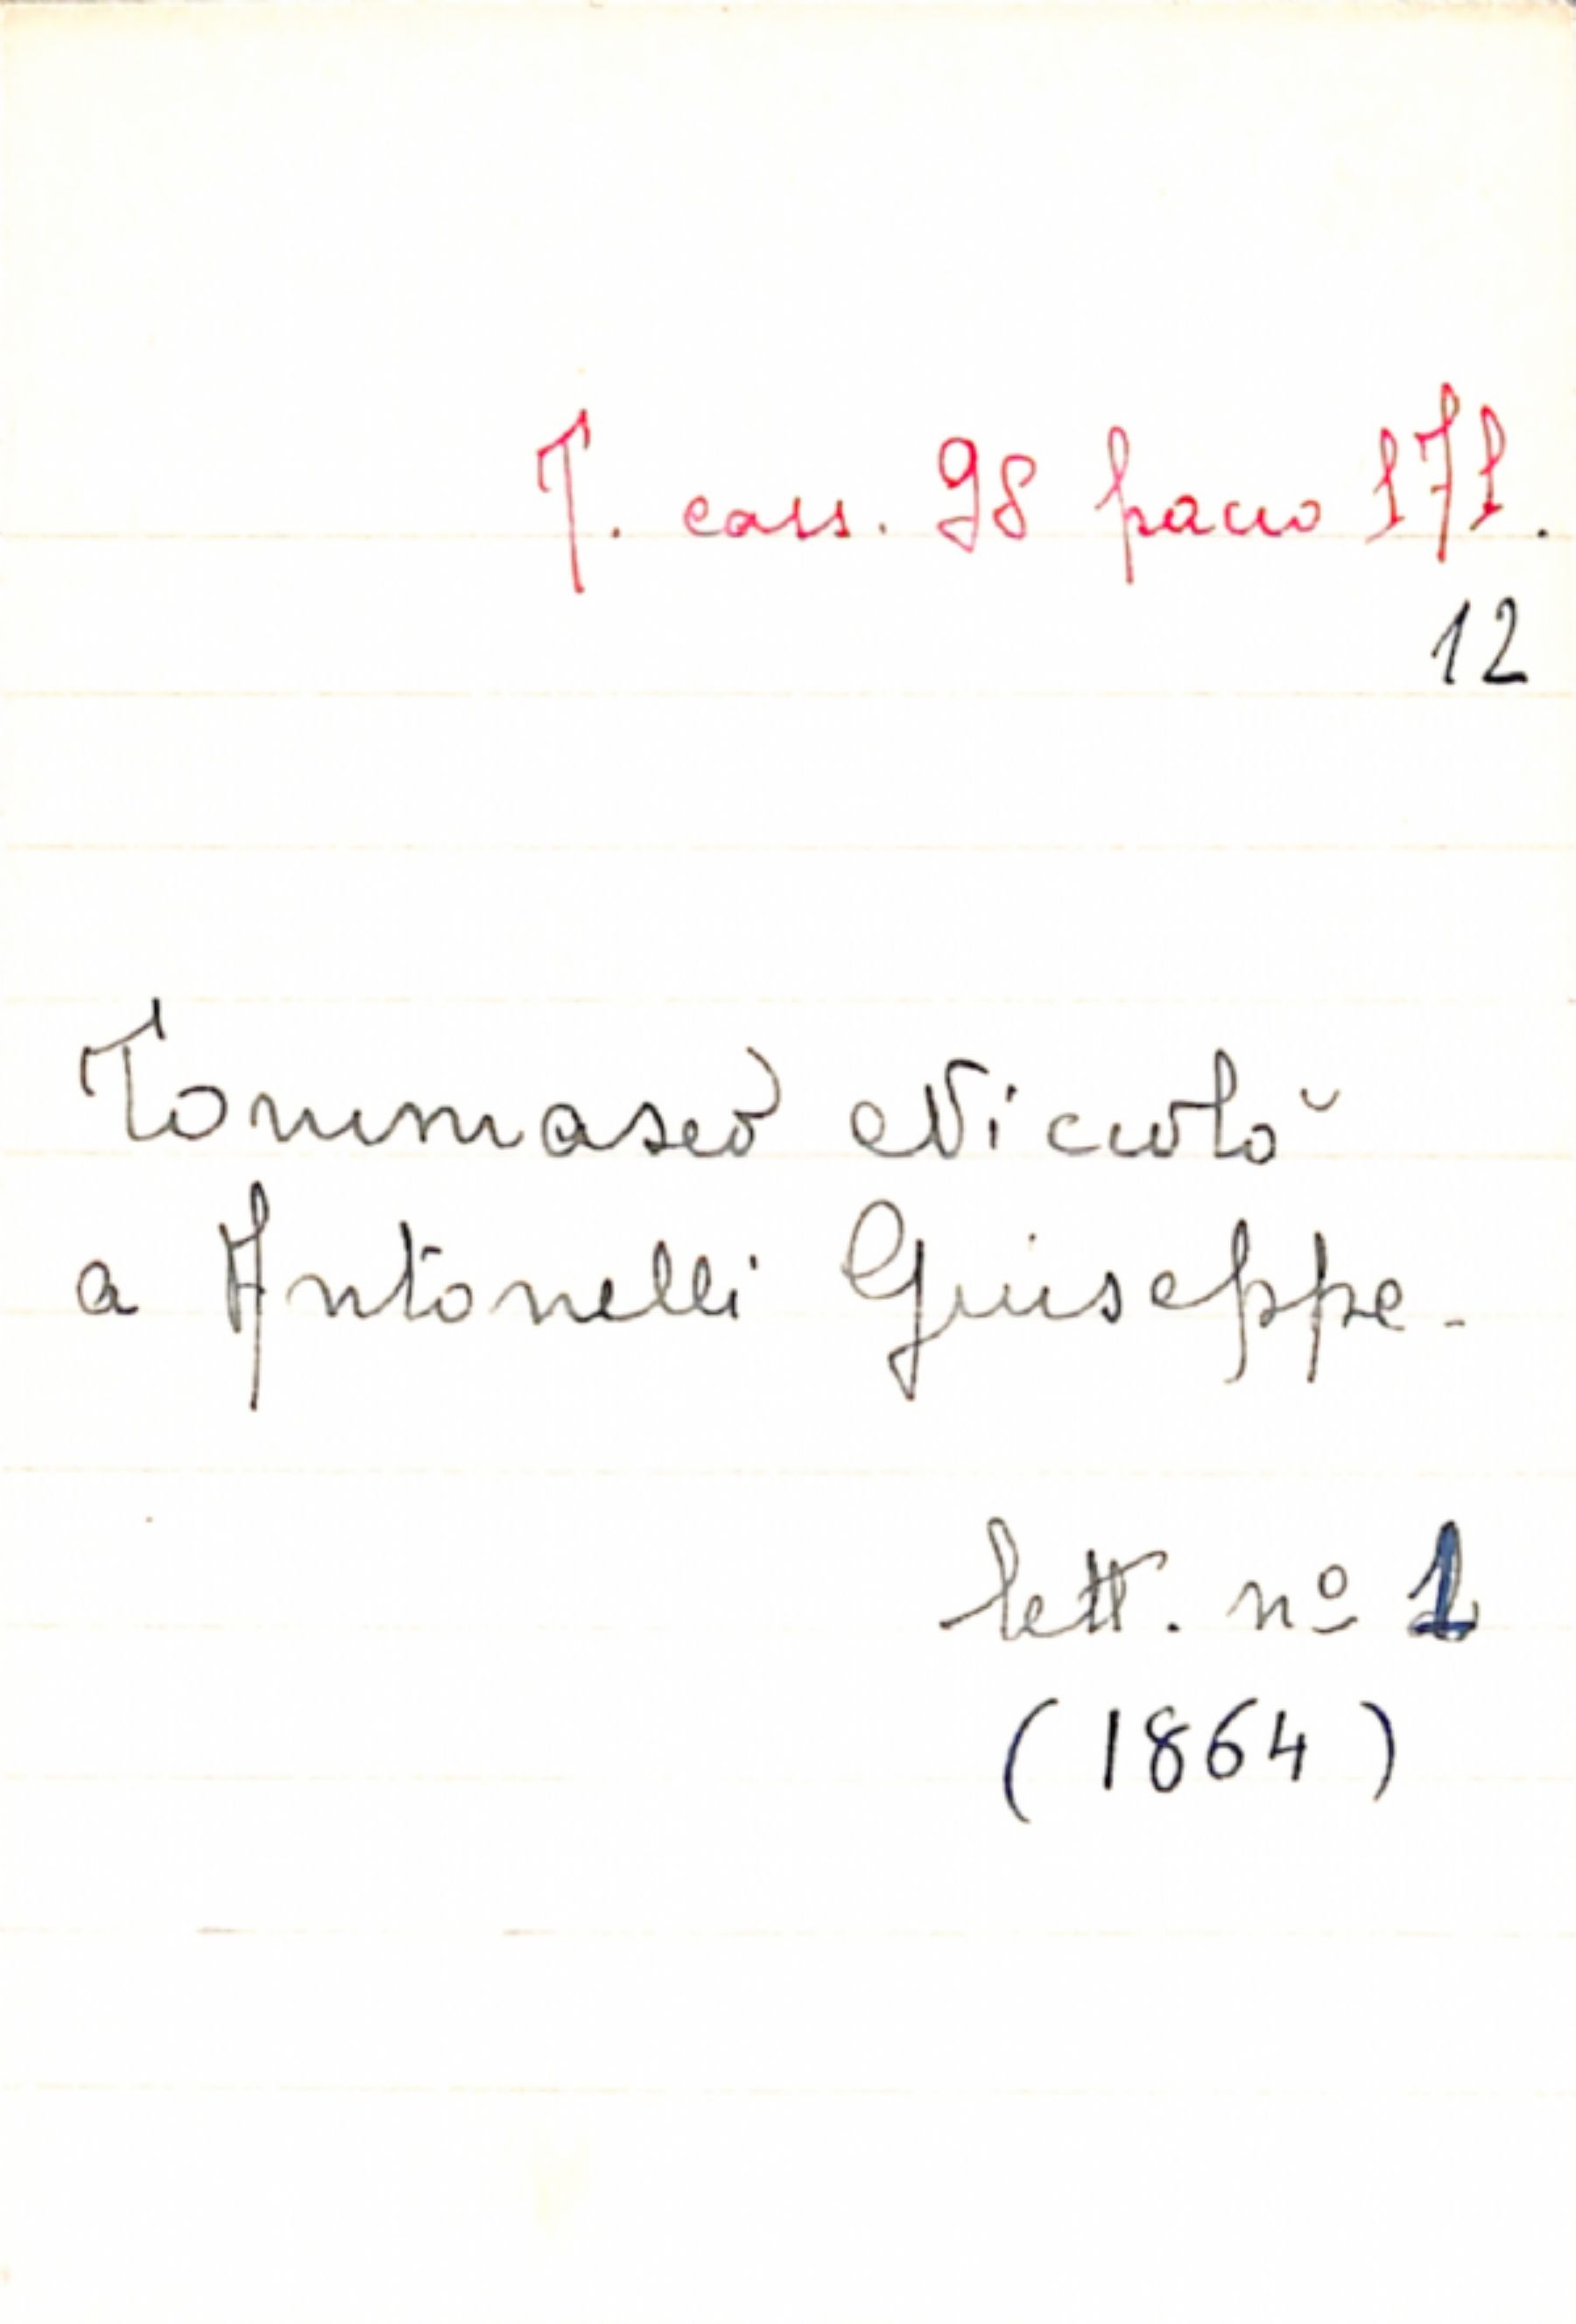 T. cass. 98 pacco 171.
12
Tommaseo Niccolò
a Antonelli Giuseppe.
lett. nº 1
(1864)